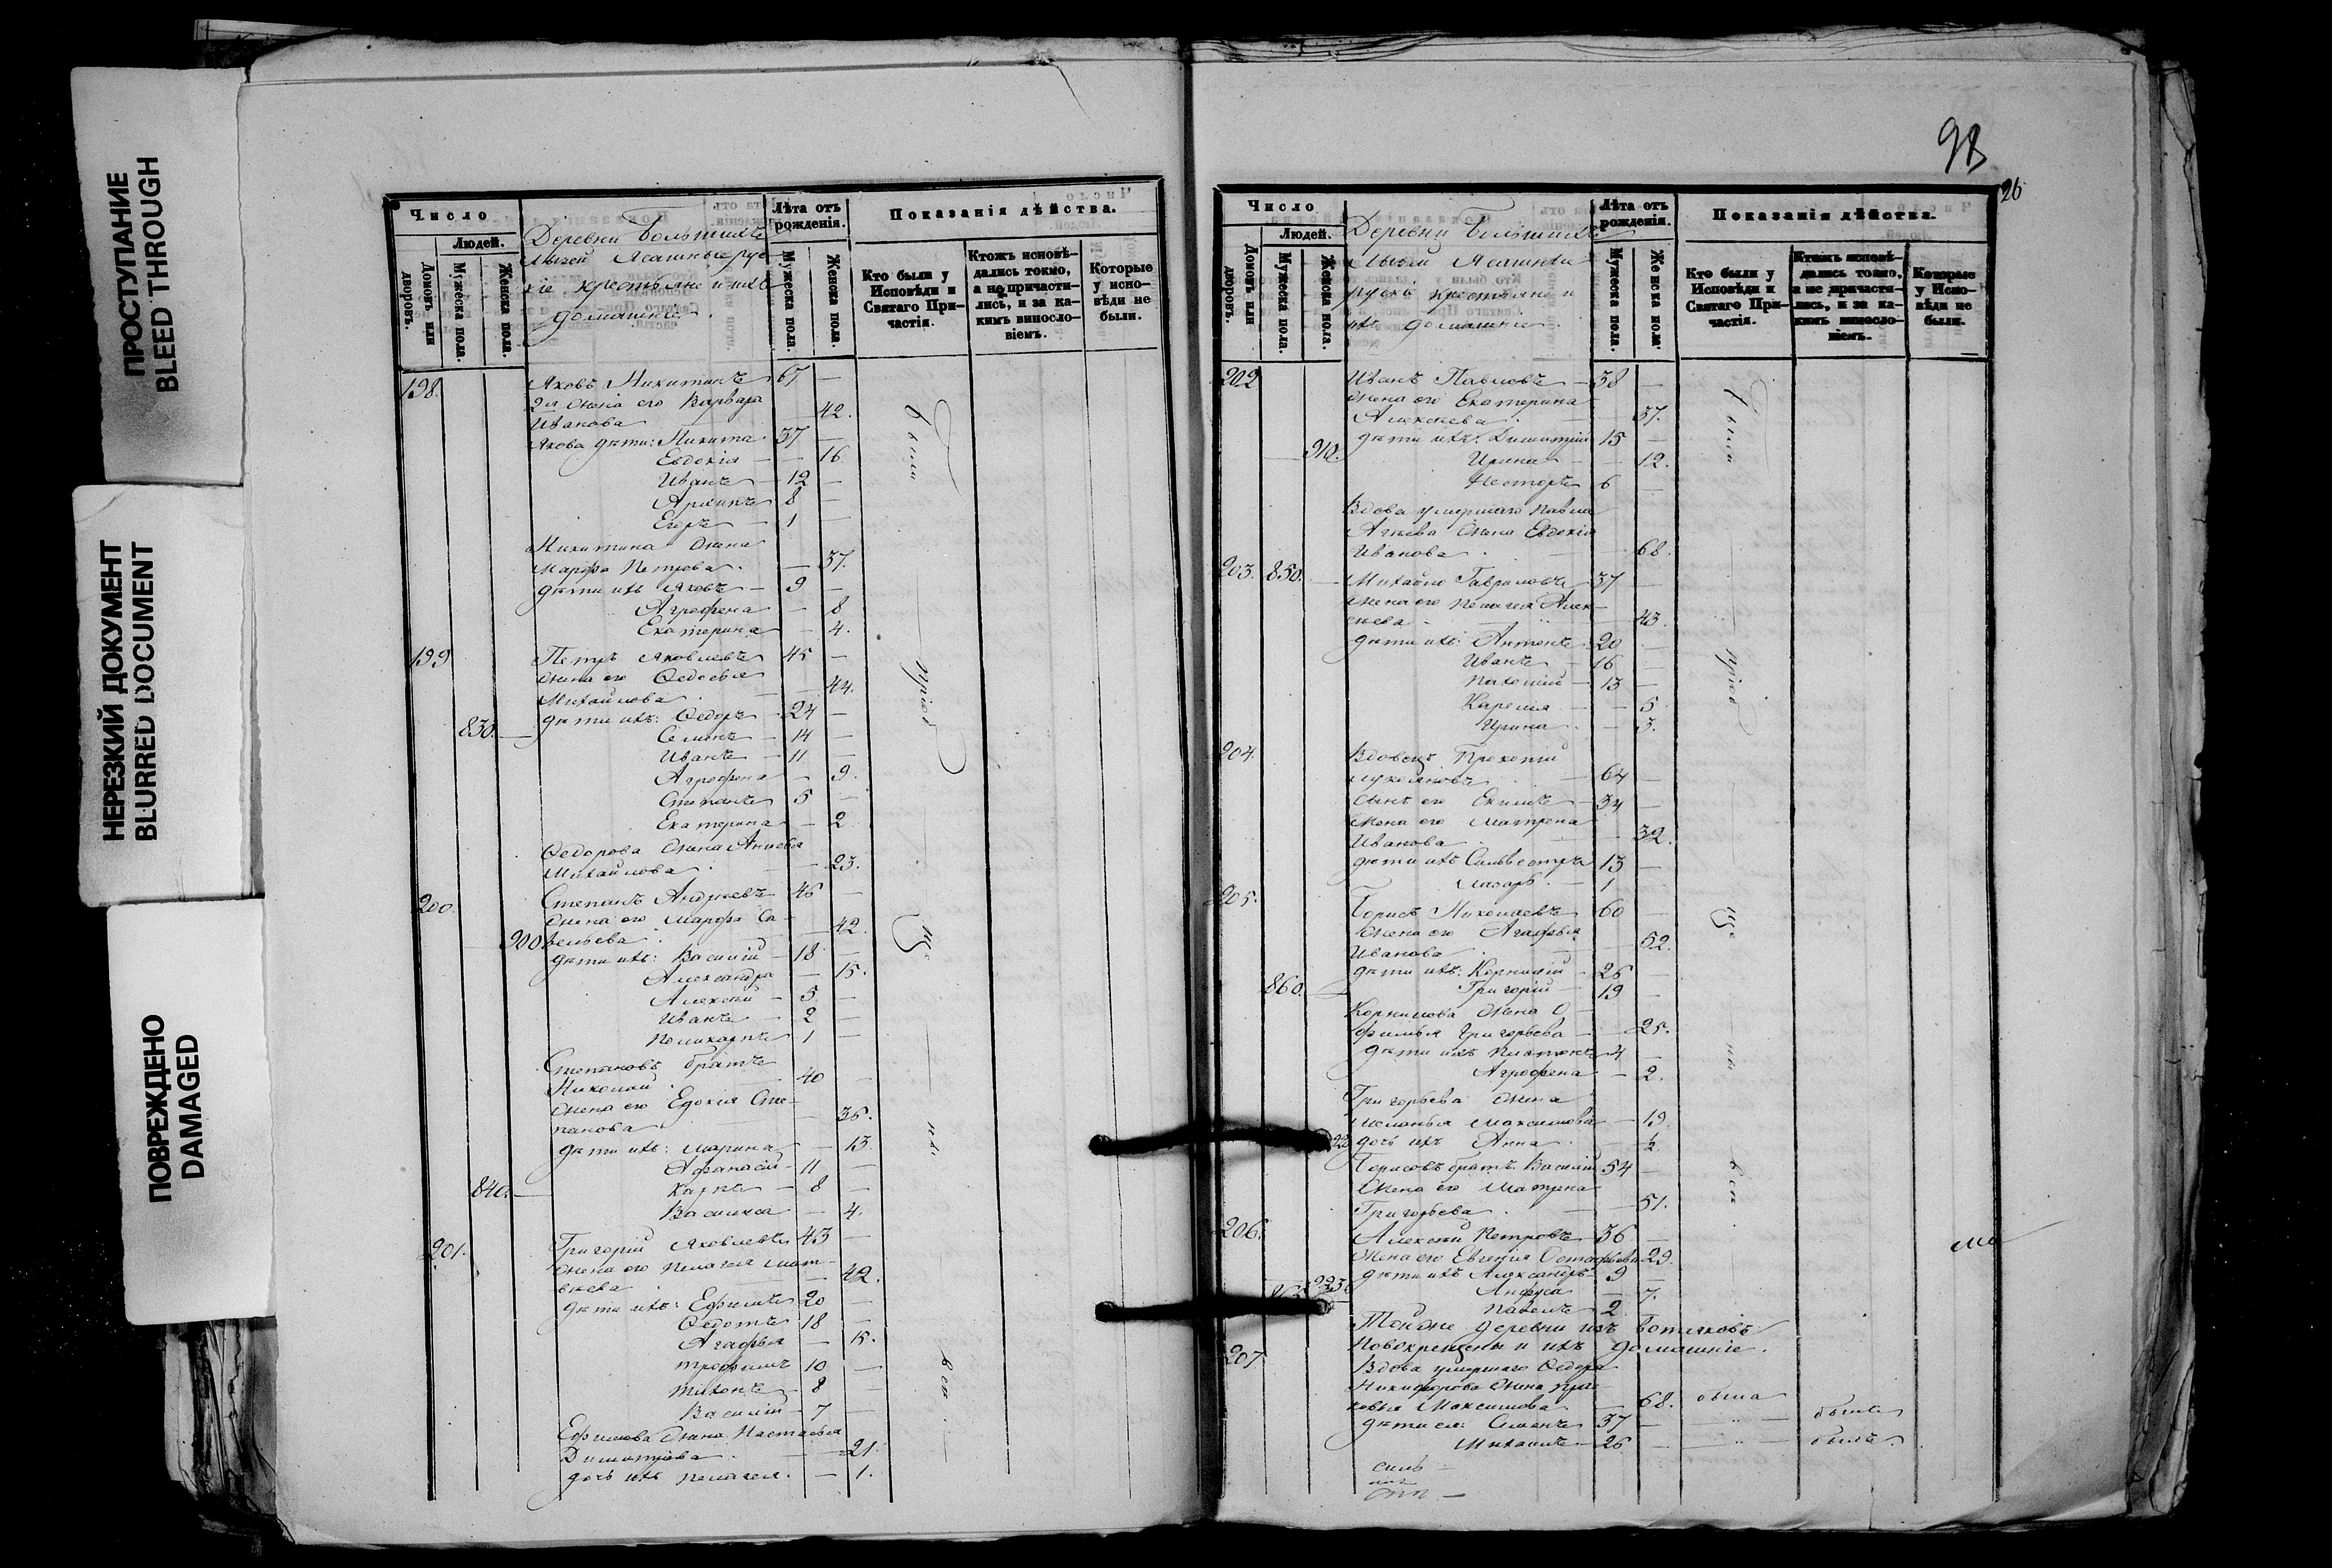 ПРОСТУПАНИЕ
BLEED THROUGH
НЕРЕЗКИЙ ДОКУМЕНТ
BLURRED DOCUMENT
ПОВРЕЖДЕНО
DAMAGED
Число
Людей.
Домовъ или дворовъ.
Мужеска пола.
Женска пола.
Деревни Большихъ
крестьяне и ихъ
домашніе.
Лѣта отъ рожденія.
Мужеска пола.
Женска пола.
Показанія дѣйства.
Кто были у Исповѣди и Святаго Причастія.
Ктожъ исповѣдались токмо, а не причастились, и за какимъ винословіемъ.
Которые у исповѣди не были.
198. Яковъ Никитинъ 67 —
2я жена его Варвара
Иванова — 42.
Якова дѣти: Никита 37 —
Евдокія — 16
Иванъ 12 —
8 —
Егоръ 1 —
Никитина жена
Марфа Петрова — 37.
дѣти ихъ Яковъ 9 —
Агрофена — 8
Екатерина — 4.
199 Петръ Яковлевъ 45 —
жена его Федосья
Михайлова — 44.
830. дѣти ихъ: Федоръ 24 —
Семенъ 14 —
Иванъ 11 —
Агрофена — 9.
Степанъ 5 —
Екатерина — 2
Федорова жена
Михайлова — 23.
200. Степанъ Андреевъ 46 —
жена его Марфа Са-
900 вельева — 42.
дѣти ихъ: Василій 18 —
Александра — 15.
Алексей 5 —
Иванъ 2 —
Поликарпъ 1 —
Степановъ братъ
Николай 40 —
жена его Едокія Сте-
панова — 35.
дѣти ихъ: Марина — 13.
Афанасій 11 —
840. Карпъ 8 —
Василиса — 4.
201. Григорій Яковлевъ 43 —
жена его Пелагея Мат-
веева — 42.
дѣти ихъ: Ефимъ 20 —
Федотъ 18 —
Агафья — 15.
Трофимъ 10 —
Тихонъ 8 —
Василій 7 —
Ефимова жена Настасья
Димитріева — 21.
дочь ихъ Пелагея. — 1.
были
всѣ
98
26
Число
Людей.
Домовъ или дворовъ.
Мужеска пола.
Женска пола.
Деревни Большихъ
крестьяне и
ихъ домашніе.
Лѣта отъ рожденія.
Мужеска пола.
Женска пола.
Показанія дѣйства.
Кто были у Исповѣди и Святаго Причастія.
Ктожъ исповѣдались токмо, а не причастились, и за какимъ винословіемъ.
Которые у Исповѣди не были.
202 Иванъ Павловъ 38 —
жена его Екатерина
Алексеева — 37.
дѣти ихъ: Димитрій 15 —
910. Ирина — 12.
Несторъ 6 —
Вдова умершаго Павла
жена Евдокія
Иванова — 68.
203. 850. Михайло Гавриловъ 37 —
жена его Пелагея Алек-
сеева — 43.
дѣти ихъ: Антонъ 20 —
Иванъ 16 —
Пахомій 13 —
— 5
Ирина — 3.
204. Вдовецъ Прокопій
Лукояновъ 64 —
сынъ его Екимъ 34 —
жена его Матрена
Иванова — 32.
дѣти ихъ Сильвестръ 13 —
Лазарь 1
205. Борисъ Николаевъ 60 —
жена его Агафья
Иванова — 52.
дѣти ихъ: Корнилій 26 —
860. Григорій 19 —
Корнилова жена О-
фимья Григорьева — 25.
дѣти ихъ Платонъ 4 —
Агрофена — 2.
Григорьева жена
Меланья Максимова — 19.
дочь ихъ Анна — ½.
Борисовъ братъ Василій 54 —
жена его Матрена
Григорьева — 51.
206. Алексей Петровъ 36 —
жена его Евгенія Остафьева 29.
дѣти ихъ Александръ 9 —
Анфуса — 7.
Павелъ 2
Тойже деревни изъ вотяковъ
новокрещены и ихъ домашніе.
207 Вдова умершаго Федора
Никифорова жена Прас-
ковья Максимова — 68. была
дѣти ея: Семенъ 37 — былъ
Михаилъ 26 — былъ
были
всѣ